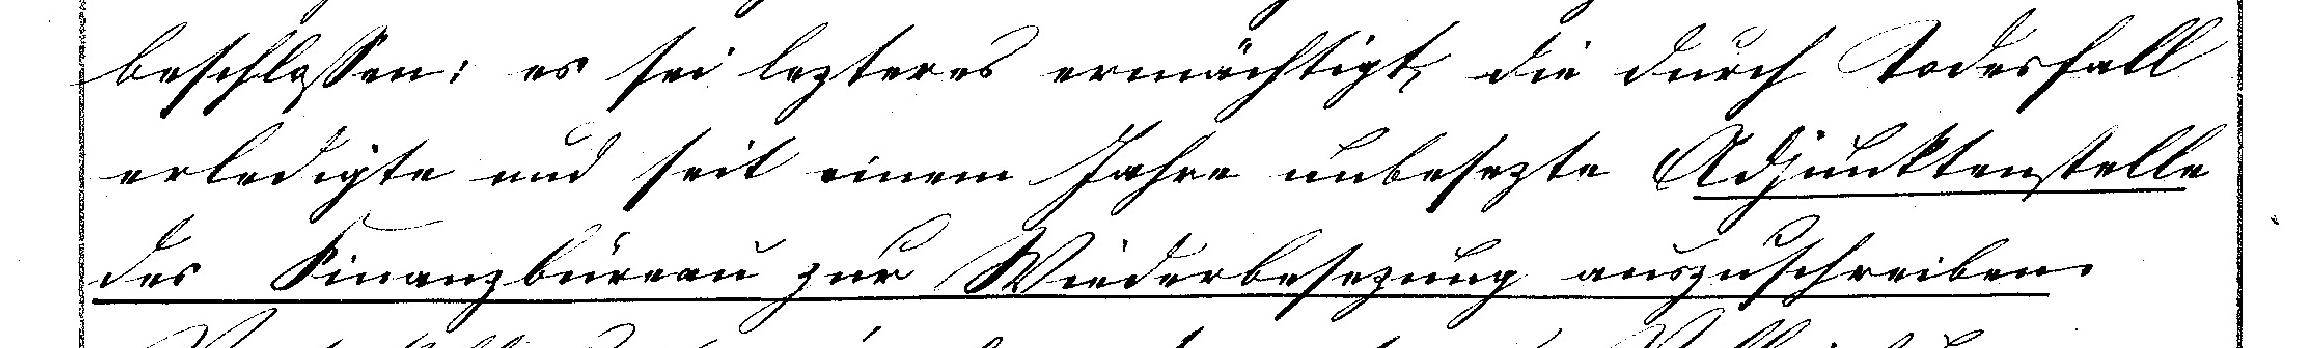 beschlossen: es sei lezteres ermächtigt, die durch Todesfall
erledigte und seit einem Jahre unbesezte Adjunktenstelle
des Finanzbüreau zur Wiederbesezung auszuschreiben.